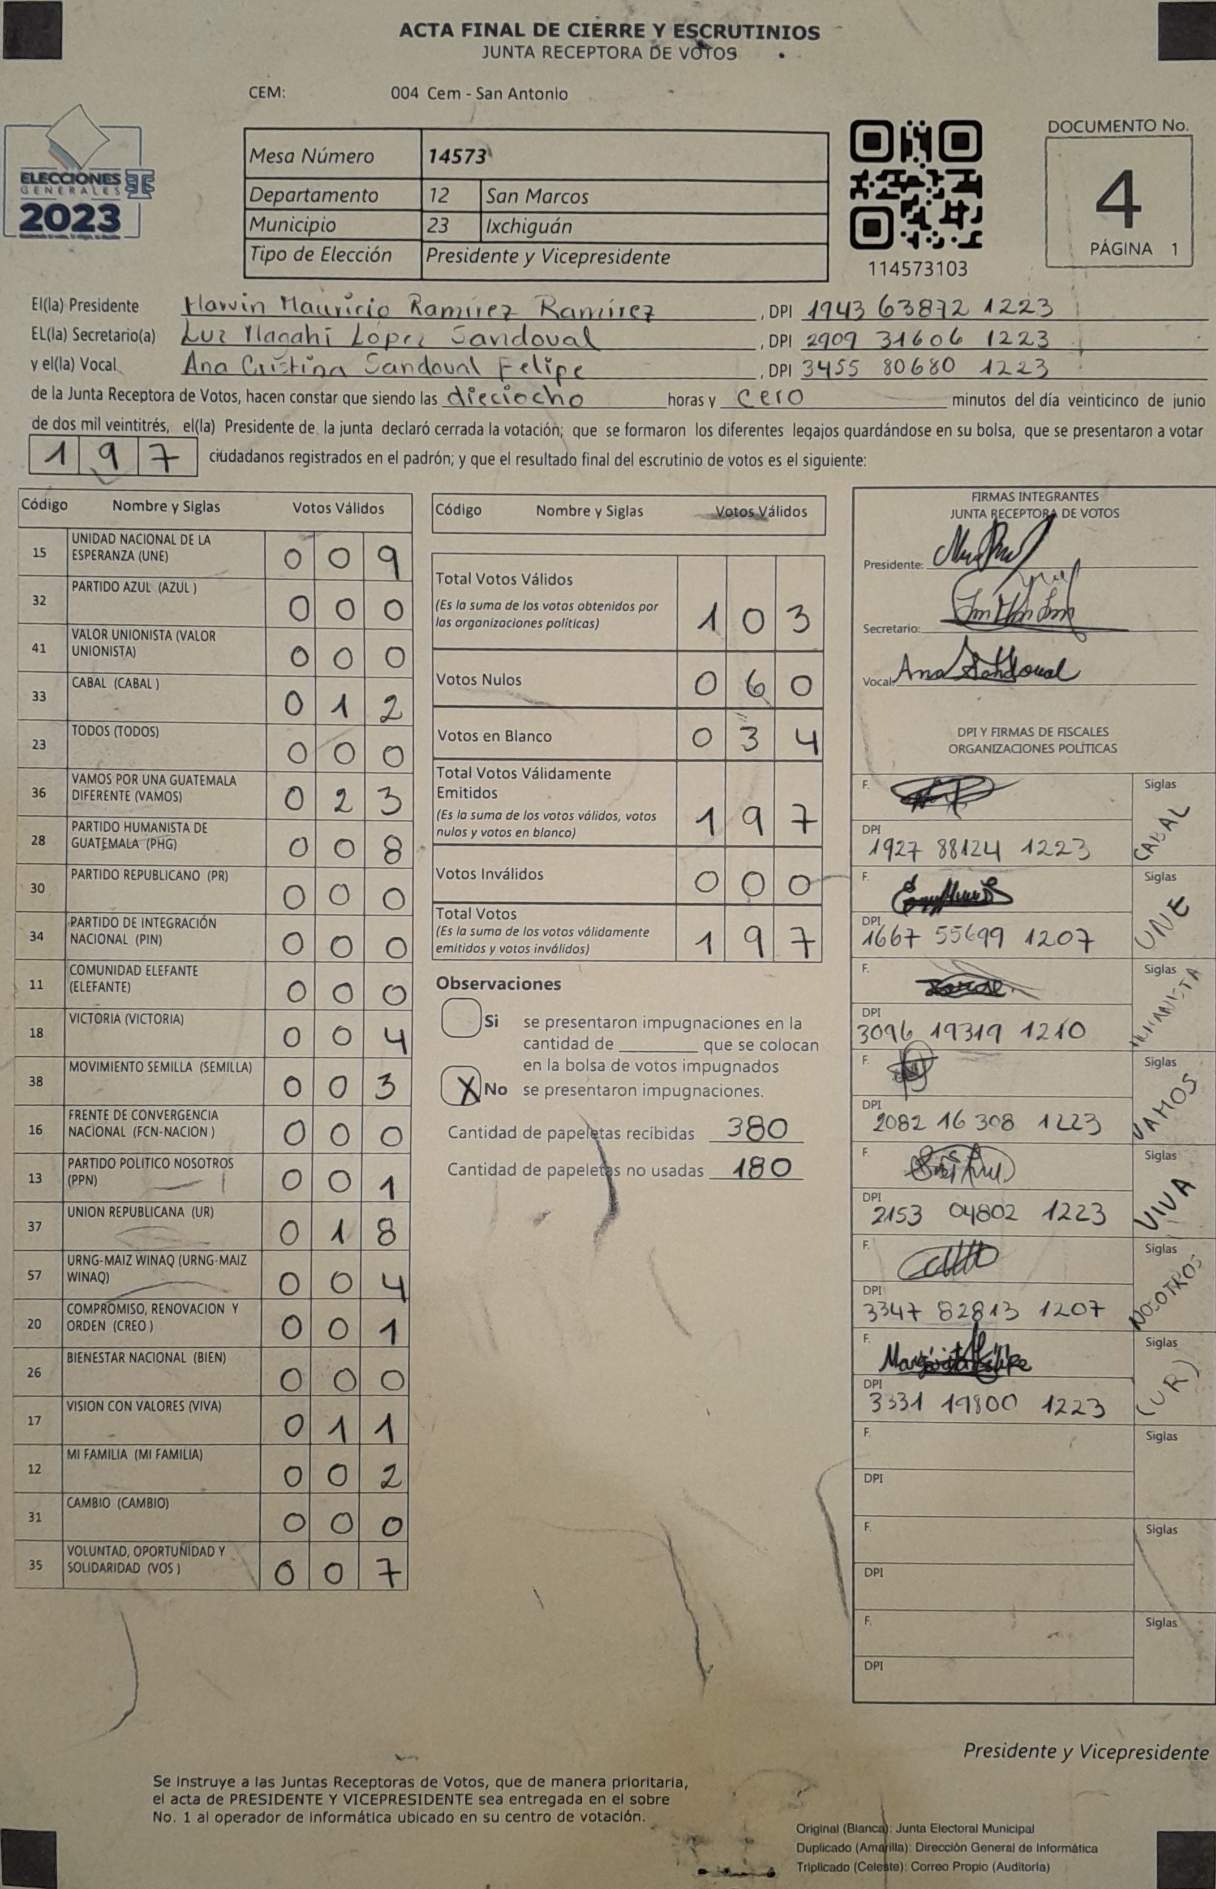 ACTA FINAL DE CIERRE Y ESCRUTINIOS
JUNTA RECEPTORA DE VOTOS
CEM: 004 Cem - San Antonio
ELECCIONES
GENERALES
2023
Mesa Número 14573
Departamento 12 San Marcos
Municipio 23 Ixchiguán
Tipo de Elección Presidente y Vicepresidente
114573103
DOCUMENTO No.
4
PÁGINA 1
El(la) Presidente Marvin Mauricio Ramírez Ramírez, DPI 1943 63872 1223
EL(la) Secretario(a) Luz Magahi López Sandoval, DPI 2909 31606 1223
y el(la) Vocal Ana Cristina Sandoval Felipe, DPI 3455 80680 1223
de la Junta Receptora de Votos, hacen constar que siendo las dieciocho horas y cero minutos del día veinticinco de junio
de dos mil veintitrés, el(la) Presidente de la junta declaró cerrada la votación; que se formaron los diferentes legajos guardándose en su bolsa, que se presentaron a votar
1 9 7 ciudadanos registrados en el padrón; y que el resultado final del escrutinio de votos es el siguiente:
Código Nombre y Siglas Votos Válidos
15 UNIDAD NACIONAL DE LA
ESPERANZA (UNE) 0 0 9
32 PARTIDO AZUL (AZUL ) 0 0 0
41 VALOR UNIONISTA (VALOR
UNIONISTA) 0 0 0
33 CABAL (CABAL ) 0 1 2
23 TODOS (TODOS) 0 0 0
36 VAMOS POR UNA GUATEMALA
DIFERENTE (VAMOS) 0 2 3
28 PARTIDO HUMANISTA DE
GUATEMALA (PHG) 0 0 8
30 PARTIDO REPUBLICANO (PR) 0 0 0
34 PARTIDO DE INTEGRACIÓN
NACIONAL (PIN) 0 0 0
11 COMUNIDAD ELEFANTE
(ELEFANTE) 0 0 0
18 VICTORIA (VICTORIA) 0 0 4
38 MOVIMIENTO SEMILLA (SEMILLA) 0 0 3
16 FRENTE DE CONVERGENCIA
NACIONAL (FCN-NACION ) 0 0 0
13 PARTIDO POLITICO NOSOTROS
(PPN) 0 0 1
37 UNION REPUBLICANA (UR) 0 1 8
57 URNG-MAIZ WINAQ (URNG-MAIZ
WINAQ) 0 0 4
20 COMPROMISO, RENOVACION Y
ORDEN (CREO ) 0 0 1
26 BIENESTAR NACIONAL (BIEN) 0 0 0
17 VISION CON VALORES (VIVA) 0 1 1
12 MI FAMILIA (MI FAMILIA) 0 0 2
31 CAMBIO (CAMBIO) 0 0 0
35 VOLUNTAD, OPORTUNIDAD Y
SOLIDARIDAD (VOS ) 0 0 7
Código Nombre y Siglas Votos Válidos
Total Votos Válidos
(Es la suma de los votos obtenidos por
las organizaciones políticas) 1 0 3
Votos Nulos 0 6 0
Votos en Blanco 0 3 4
Total Votos Válidamente
Emitidos
(Es la suma de los votos válidos, votos
nulos y votos en blanco) 1 9 7
Votos Inválidos 0 0 0
Total Votos
(Es la suma de los votos válidamente
emitidos y votos inválidos) 1 9 7
Observaciones
Si se presentaron impugnaciones en la
cantidad de ________ que se colocan
en la bolsa de votos impugnados
X No se presentaron impugnaciones.
Cantidad de papeletas recibidas 380
Cantidad de papeletas no usadas 180
FIRMAS INTEGRANTES
JUNTA RECEPTORA DE VOTOS
Presidente:
Secretario:
Vocal: Ana Sandoval
DPI Y FIRMAS DE FISCALES
ORGANIZACIONES POLÍTICAS
F. Siglas
DPI 1927 88124 1223 CABAL
F. Siglas
DPI 1667 55699 1207 UNE
F. Siglas
DPI 3096 19319 1210 HUMANISTA
F. Siglas
DPI 2082 16 308 1223 VAMOS
F. Siglas
DPI 2153 04802 1223 VIVA
F. Siglas
DPI 3347 82813 1207 NOSOTROS
F. Margarita Felipe Siglas
DPI 3331 19800 1223 (UR)
F. Siglas
DPI
F. Siglas
DPI
F. Siglas
DPI
Presidente y Vicepresidente
Se instruye a las Juntas Receptoras de Votos, que de manera prioritaria,
el acta de PRESIDENTE Y VICEPRESIDENTE sea entregada en el sobre
No. 1 al operador de informática ubicado en su centro de votación.
Original (Blanca): Junta Electoral Municipal
Duplicado (Amarilla): Dirección General de Informática
Triplicado (Celeste): Correo Propio (Auditoría)